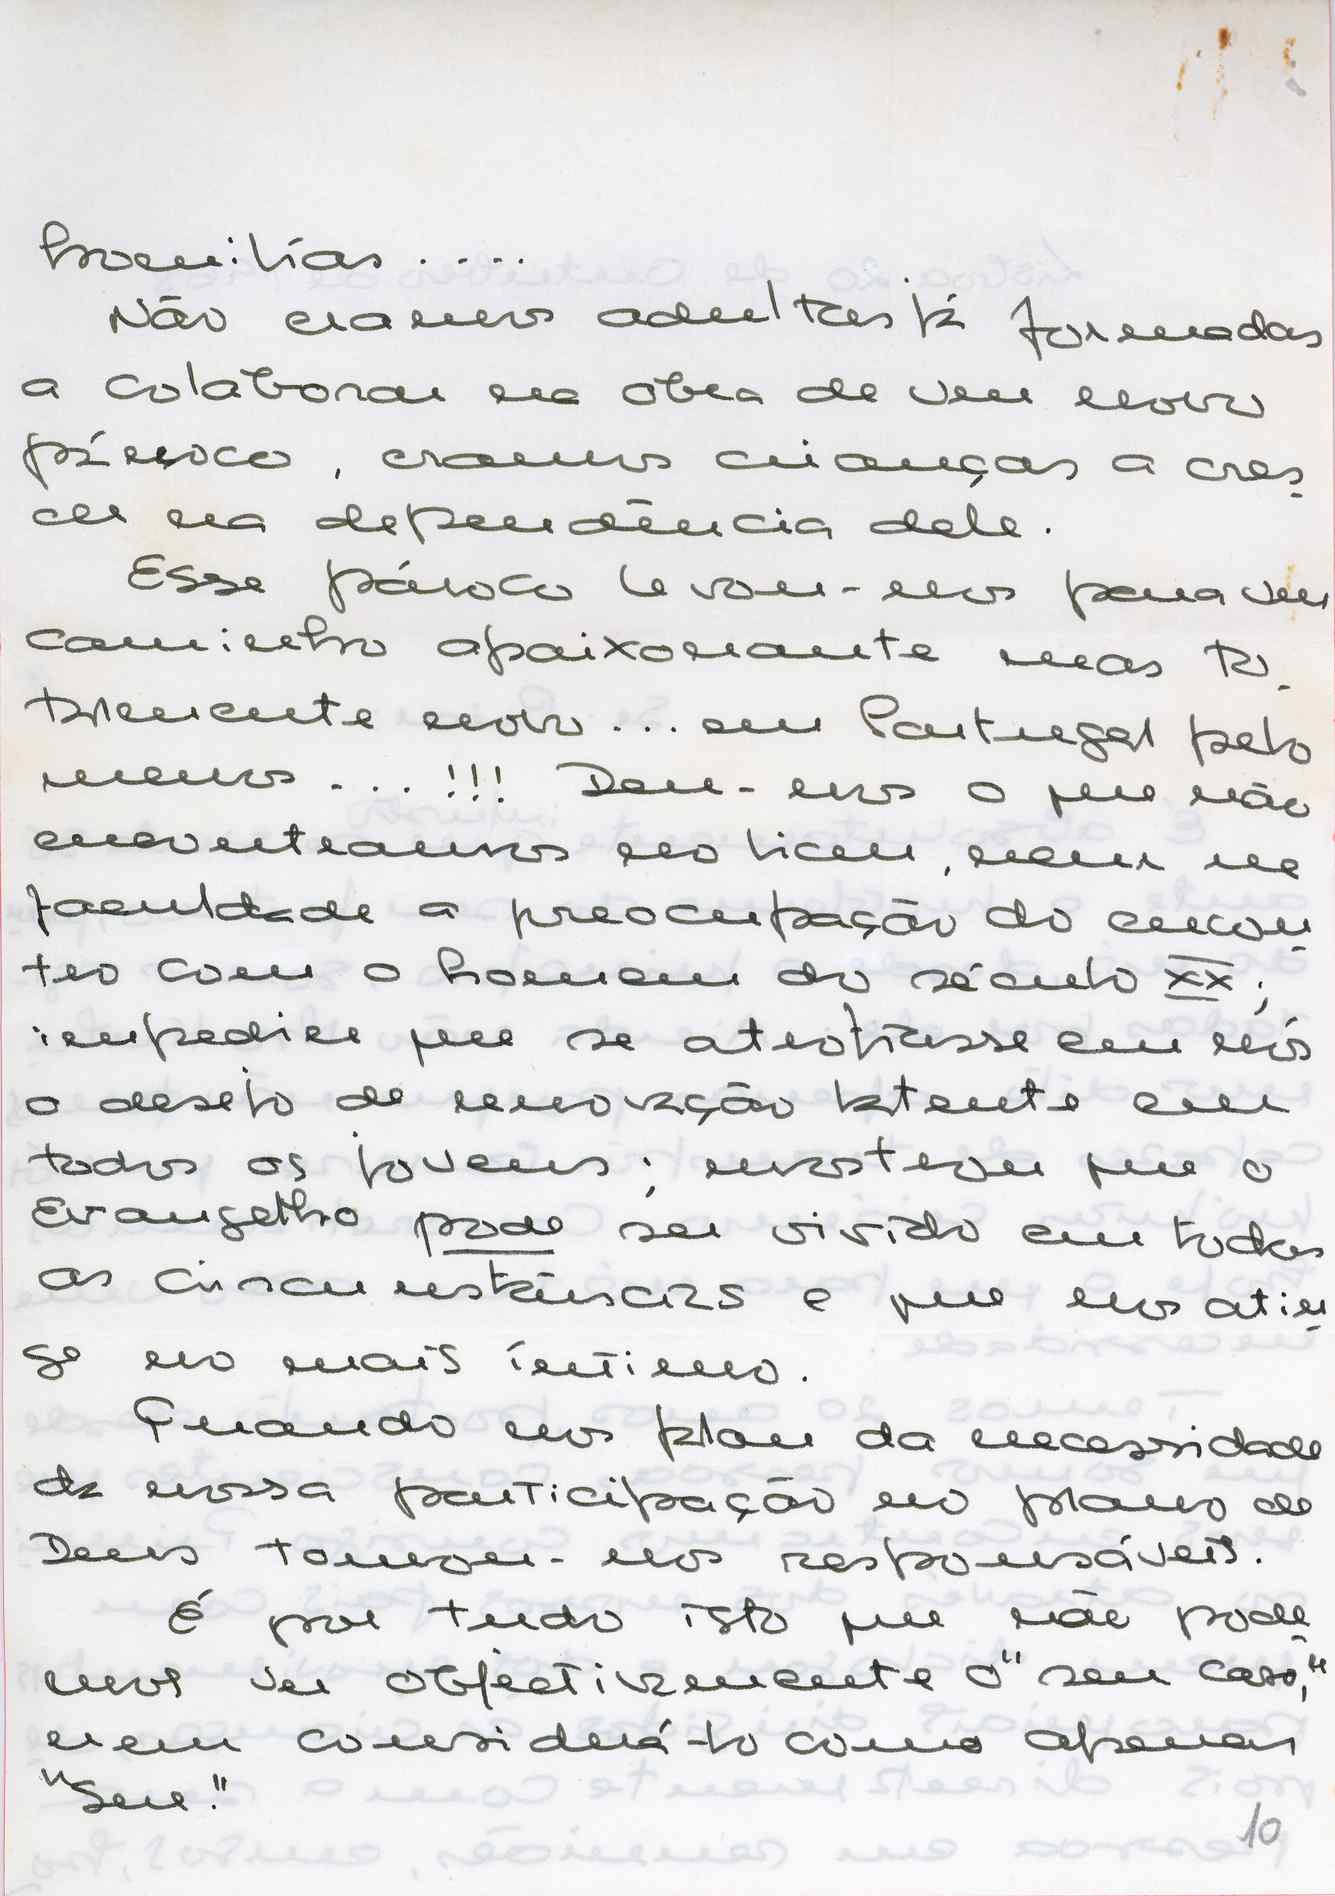 homilías.....
Não eramos adultas já formadas
a colaborar na obra de um novo
pároco, eramos crianças a cres-
cer na dependência dele.
Esse pároco levou-nos para um
caminho apaixonante mas to-
talmente novo... em Portugal pelo
menos....!!! Deu-nos o que não
encontramos no liceu, nem na
faculdade a preocupação do encon-
tro com o homem do século XX;
impediu que se atrofiasse em nós
o desejo de renovação latente em
todos os jovens; mostrou que o
Evangelho pode ser vivido em todas
as circunstâncias e que nos atin-
ge no mais íntimo.
Quando nos falou da necessidade
da nossa participação no plano de
Deus tornou-nos responsáveis.
É por tudo isto que não pode-
mos ver objectivamente o "seu caso,"
nem considerá-lo como apenas
"Seu."
10